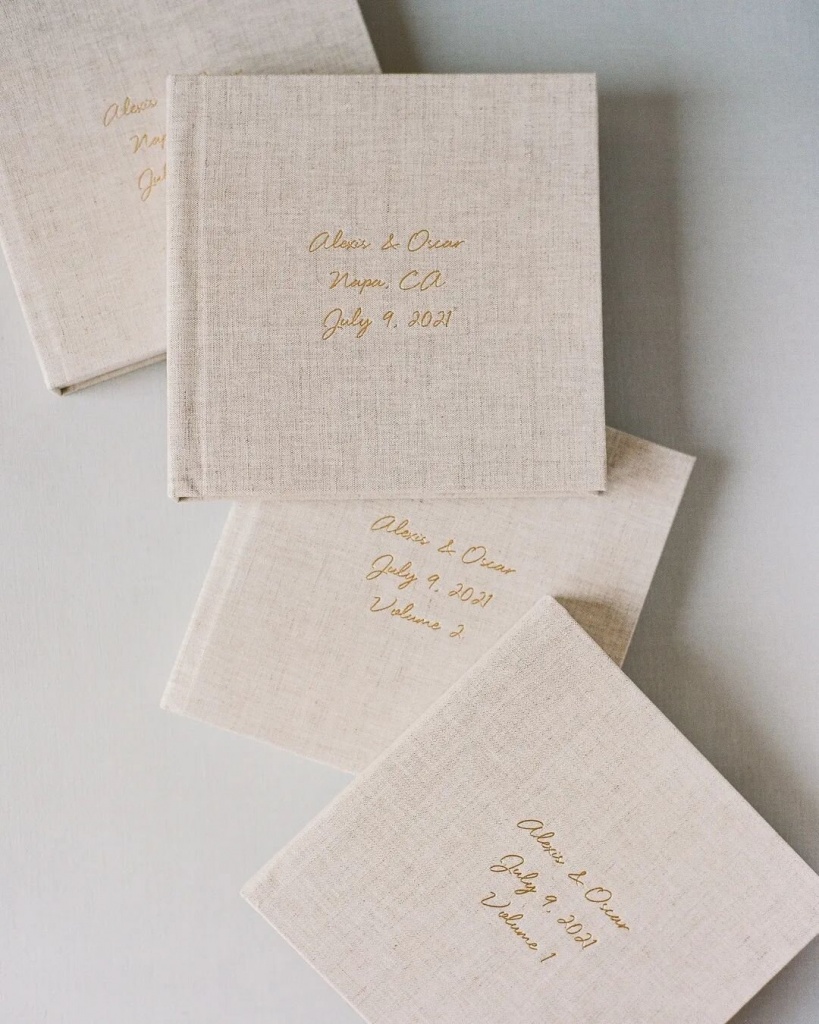 Alexis
Nap
Jul
Alexis & Oscar
Napa, CA
July 9, 2021
Alexis & Oscar
July 9, 2021
Volume 2
Alexis & Oscar
July 9, 2021
Volume 1